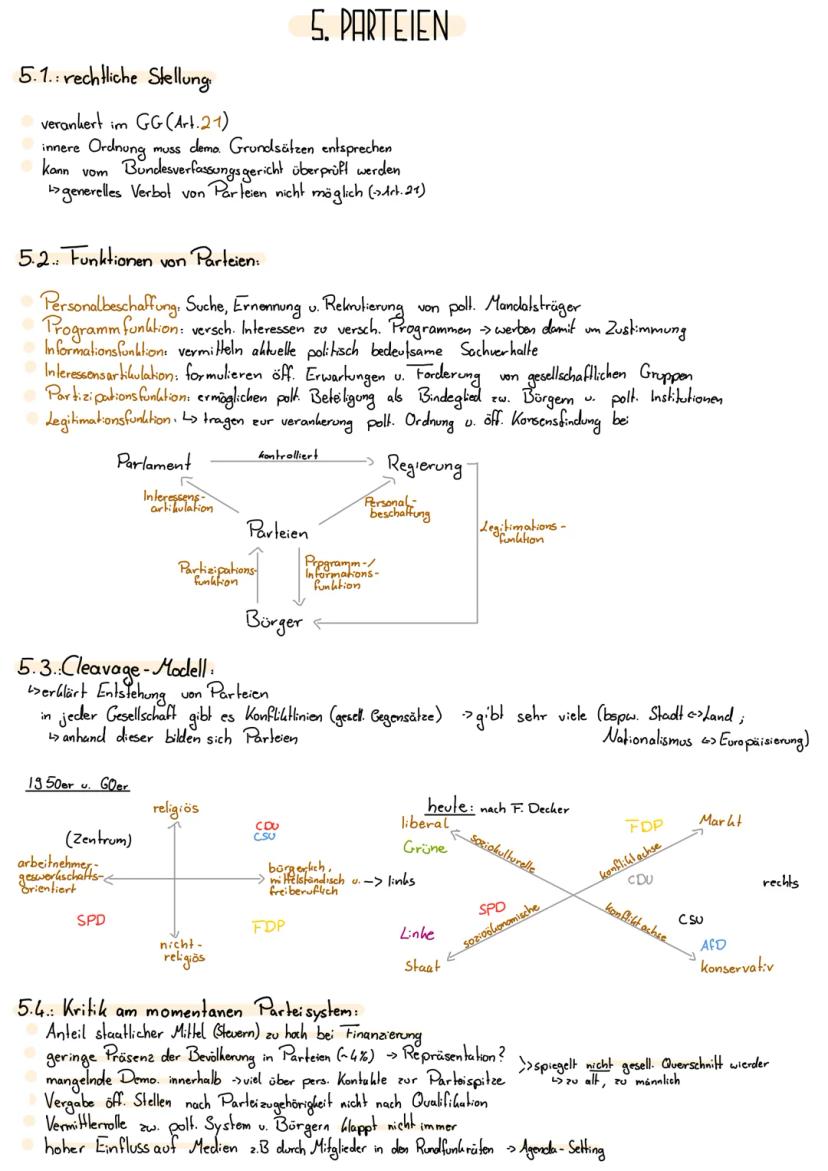 5. PARTEIEN
5.1.: rechtliche Stellung:
verankert im GG (Art. 21)
innere Ordnung muss demo. Grundsätzen entsprechen
kann vom Bundesverfassungsgericht überprüft werden
↳ generelles Verbot von Parteien nicht möglich (→ Art. 21)
5.2.: Funktionen von Parteien:
Personalbeschaffung: Suche, Ernennung u. Rekrutierung von polt. Mandatsträger
Programmfunktion: versch. Interessen zu versch. Programmen → werben damit um Zustimmung
Informationsfunktion: vermitteln aktuelle politisch bedeutsame Sachverhalte
Interessensartikulation: formulieren öff. Erwartungen u. Forderung von gesellschaftlichen Gruppen
Partizipationsfunktion: ermöglichen polt. Beteiligung als Bindeglied zw. Bürgern u. polt. Institutionen
Legitimationsfunktion: ↳ tragen zur verankerung polt. Ordnung u. öff. Konsensfindung bei
Parlament kontrolliert Regierung
Interessens-
artikulation
Personal-
beschaffung
Parteien
Legitimations-
funktion
Partizipations-
funktion
Programm-/
Informations-
funktion
Bürger
5.3.: Cleavage-Modell:
↳ erklärt Entstehung von Parteien
in jeder Gesellschaft gibt es Konfliktlinien (gesell. Gegensätze) → gibt sehr viele (bspw. Stadt ↔ Land;
↳ anhand dieser bilden sich Parteien Nationalismus ↔ Europäisierung)
1950er u. 60er
religiös
(Zentrum)
CDU
CSU
arbeitnehmer-
gewerkschafts-
orientiert
bürgerlich,
mittelständisch u.
freiberuflich
SPD
FDP
nicht-
religiös
heute: nach F. Decker
liberal
FDP
Markt
Grüne
soziokulturelle
konfliktachse
CDU
-> links
rechts
SPD
Linke
sozioökonomische
konfliktachse
CSU
AfD
Staat
konservativ
5.4.: Kritik am momentanen Parteisystem:
Anteil staatlicher Mittel (Steuern) zu hoch bei Finanzierung
geringe Präsenz der Bevölkerung in Parteien (~4%) → Repräsentation? >> spiegelt nicht gesell. Querschnitt wierder
mangelnde Demo. innerhalb → viel über pers. Kontakte zur Parteispitze ↳ zu alt, zu männlich
Vergabe öff. Stellen nach Parteizugehörigkeit nicht nach Qualifikation
Vermittlerrolle zw. polt. System u. Bürgern klappt nicht immer
hoher Einfluss auf Medien z.B durch Mitglieder in den Rundfunkräten → Agenda-Setting